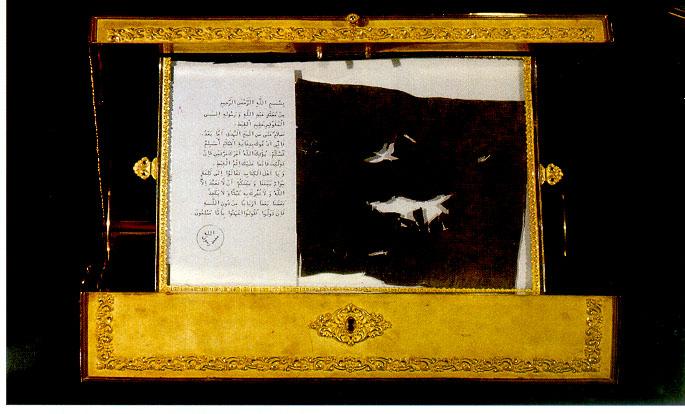 بِسْمِ اللَّهِ الرَّحْمَنِ الرَّحِيمِ
مِنْ مُحَمَّدٍ عَبْدِ اللَّهِ وَرَسُولِهِ إِلَى
الْمُقَوْقِسِ عَظِيمِ الْقِبْطِ.
سَلَامٌ عَلَى مَنِ اتَّبَعَ الْهُدَى أَمَّا بَعْدُ.
فَإِنِّي أَدْعُوكَ بِدِعَايَةِ الْإِسْلَامِ أَسْلِمْ
تَسْلَمْ. يُؤْتِكَ اللَّهُ أَجْرَكَ مَرَّتَيْنِ فَإِنْ
تَوَلَّيْتَ فَإِنَّمَا عَلَيْكَ إِثْمُ الْقِبْطِ.
وَ يَا أَهْلَ الْكِتَابِ تَعَالَوْا إِلَى كَلِمَةٍ
سَوَاءٍ بَيْنَنَا وَ بَيْنَكُمْ أَنْ لَا نَعْبُدَ إِلَّا
اللَّهَ وَ لَا نُشْرِكَ بِهِ شَيْئًا وَ لَا يَتَّخِذَ
بَعْضُنَا بَعْضًا أَرْبَابًا مِنْ دُونِ اللَّهِ
فَإِنْ تَوَلَّوْا فَقُولُوا اشْهَدُوا بِأَنَّا مُسْلِمُونَ
الله
رسول
محمد